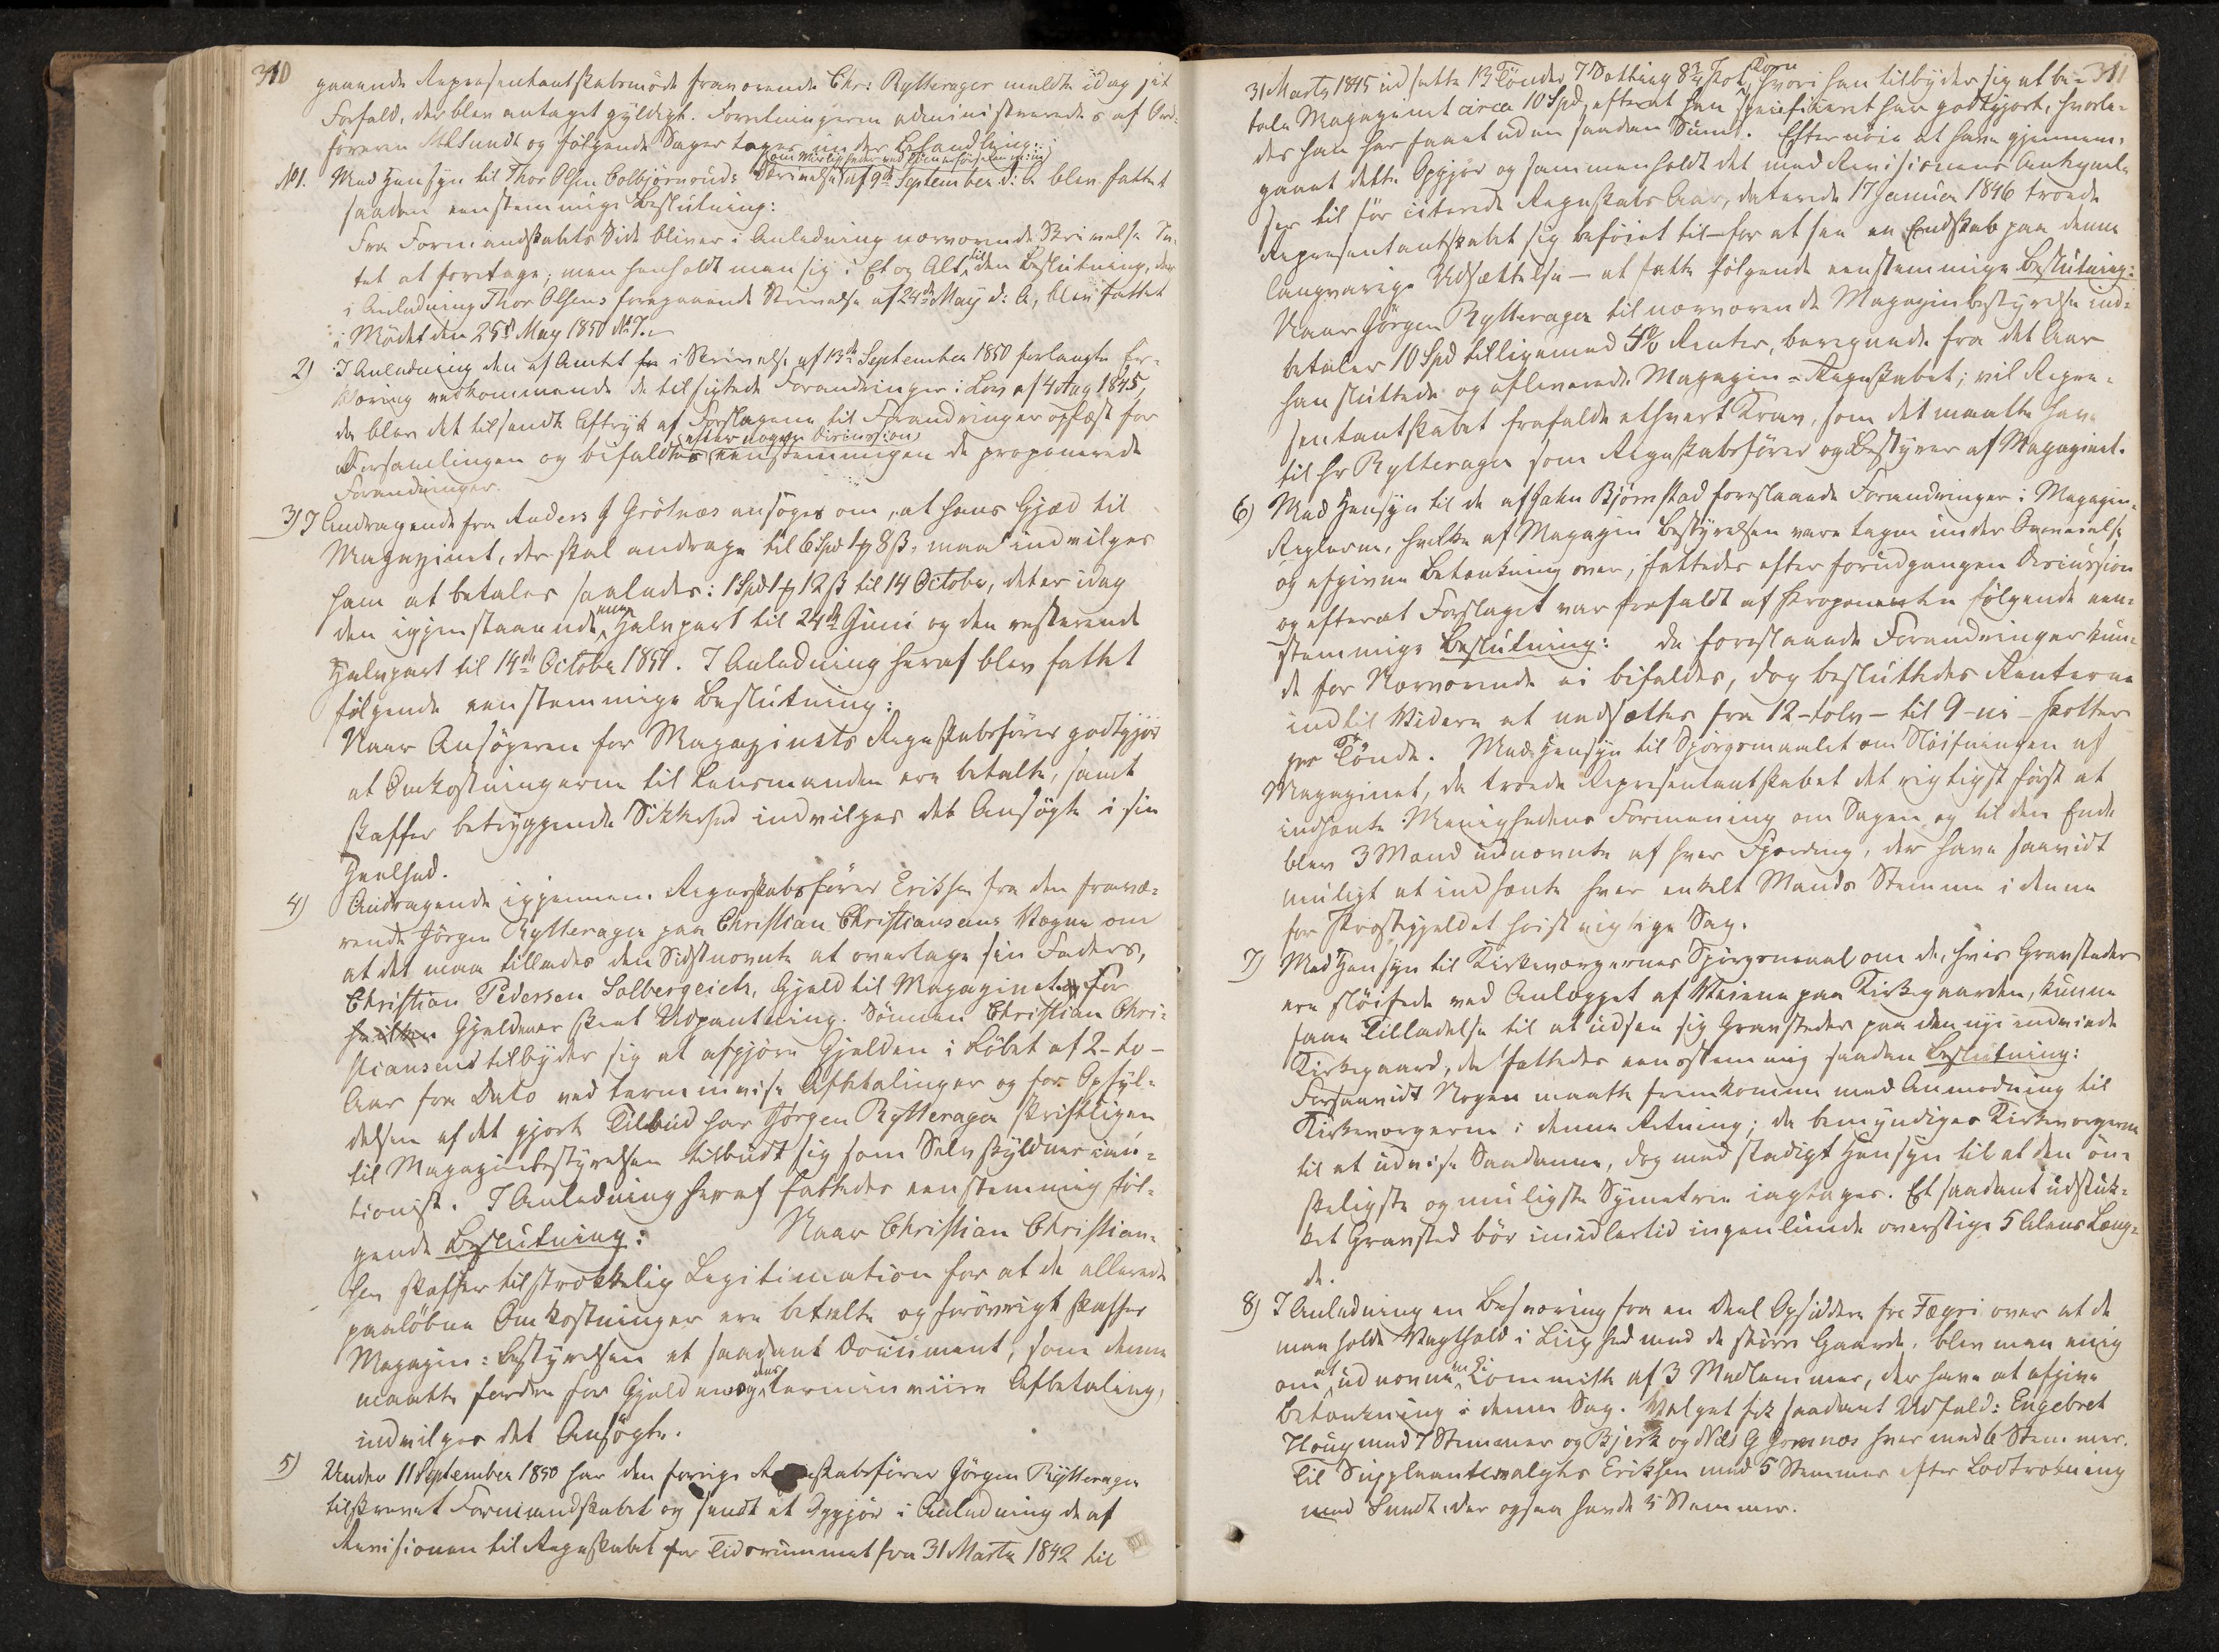 310
gaaende Repræsentantskabsmøde fraværende Chr: Rytterager meldte idag sit
Forfald, der blev antaget gyldigt. Forretningerne administreredes af Ord-
føreren Sundt og følgende Sager toges under Behandling:
No 1. Med Hensyn til Thor Olsen Colbjørnruds Skrivelse af 9de September d: A blev fattet
saadan eenstemmige Beslutning:
Fra Formandskabets Side bliver i Anledning nærværende Skrivelse In-
tet at foretage; men henholdt man sig i Et og Alt til den Beslutning, der
i Anledning Thor Olsens foregaaende Skrivelse af 24de May d: A, blev fattet
i Mødet den 25de May 1850 No 7.
2) I Anledning den af Amtet i Skrivelse af 13de September 1850 forlangte Er-
klæring vedkommende de tilsigtede Forandringer i Lov af 4 Aug 1845,
da blev det tilsendte Aftryk af Forslagene til Forandringer oplæst for
Forsamlingen og bifaldtes efter nogen Discussion eenstemmigen de proponerede
Forandringer.
3) I Andragende fra Anders G Grötnæs ansøges om, at hans Gjæld til
Magazinet, der skal andrage til 6 Spd 1 ₰ 8 ß, maa indvilges
ham at betales saaledes: 1 Spd 1 ₰ 12 ß til 14 October, det er idag
den igjenstaaende Halvpart til 24de Juni og den resterende
Halvpart til 14de October 1851. I Anledning heraf blev fattet
følgende eenstemmige Beslutning:
Naar Ansøgeren for Magazinets Regnskabsfører godtgjør
at Omkostningerne til Lensmanden ere betalte, samt
skaffer betryggende Sikkerhed indvilges det Ansøgte i sin
Heelhed.
4) Andragende igjennem Regnskabsfører Eriksen fra den fravæ-
rende Jørgen Rytterager paa Christian Christiansens Vegne om
at det maa tillades den Sidstnævnte at overtage sin Faders,
Christian Pedersen Solbergeiets, Gjæld til Magazinet for
hvilken Gjældener skeet Udpantning. Sønnen Christian Chri-
stiansens tilbyder sig at afgjøre Gjælden i Løbet af 2-to-
Aar fra Dato ved terminvise Afbetalinger og for Opfyl-
delsen af det gjorte Tilbud har Jørgen Rytterager skriftligen
til Magazinbestyrelsen tilbudt sig som Selvskyldnercau-
tionist. I Anledning heraf fattedes eenstemmig føl-
gende Beslutning: Naar Christian Christian-
sen skaffer tilstrækkelig Legitimation for at de allerede
paaløbne Omkostninger ere betalte og forøvrigt skaffer
Magazin-Bestyrelsen et saadant Document, som denne
maatte fordre for Gjælden og dens terminviise Afbetaling,
indvilges det Ansøgte.
5) Under 11 September 1850 har den forrige Regnskabsfører Jørgen Rytterager
tilskrevet Formandskabet og sendt et Opgjør i Anledning de af
Revisionen til Regnskabet for Tidsrummet fra 31 Marts 1842 til
311
31 Marts 1845 udsatte 13 Tønder 7 Sætting 8 3/4 Pot Korn, hvori han tilbyder sig at be-
tale Magazinet circa 10 Spd, efterat han specificeret har godtgjort, hvorle-
des han har faaet ud en saadan Sum. Efter nøie at have gjennem-
gaaet dette Opgjør og sammenholdt det med Revisionens Antegnel-
ser til før citerede Regnskabs Aar, daterede 17 Januar 1846 troede
Repræsentantskabet sig beføiet til – for at faa en Endskab paa denne
langvarige Udsættelse – at fatte følgende eenstemmige Beslutning:
Naar Jørgen Rytterager til nærværende Magazinbestyrelse ind-
betaler 10 Spd tilligemed 4% Renter, beregnede fra det Aar
han sluttede og afleverede Magazin-Regnskabet; vil Repræ-
sentantskabet frafalde ethvert Krav, som det maatte have
til Hr Rytterager som Regnskabsfører og Bestyrer af Magazinet.
6) Med Hensyn til de af Gahn Bjørnstad foreslaaede Forandringer i Magazin-
Reglerne, hvilke af Magazin Bestyrelsen vare tagne under Overveielse
og afgiven Betænkning over, fattedes efter forudgangen Discussion
og efterat Forslaget var frafaldt af Proponenten følgende een-
stemmige Beslutning: de foreslaaede Forandringer kun-
de for Nærværende ei bifaldes, dog besluttedes Renterne
indtil Videre at nedsættes fra 12-tolv- til 9-ni-Potter
per Tønde. Med Hensyn til Spørgsmaalet om Sløifningen af
Magazinet, da troede Repræsentantskabet det rigtigst først at
indhente Menighedens Formening om Sagen og til den Ende
blev 3 Mænd udnævnte af hver Fjerding, der have saavidt
muligt at indhente hver enkelt Mands Stemme i denne
for Præstegjeldet høist vigtige Sag.
7) Med Hensyn til Kirkeværgernes Spørgsmaal om de, hvis Gravsteder
ere sløifede ved Anlægget af Veiene paa Kirkegaarden, kunne
faae Tilladelse til at udsee sig Gravsteder paa den nye indviede
Kirkegaard, da fattedes eenstemmig saadan Beslutning:
Forsaavidt Nogen maatte fremkomme med Anmodning til
Kirkeværgerne i denne Retning; da bemyndiges Kirkeværgerne
til at udvise Saadanne, dog med stadigt Hensyn til at den øn-
skeligste og muligste Symetrie iagtages. Et saadant udstuk-
ket Gravsted bør imidlertid ingenlunde overstige 5 Alens Læng-
de.
8) I Anledning en Besværing fra en Deel Opsiddere fra Fægri over at de
maa holde Vagthold i Liighed med de større Gaarde, blev man enig
om at udnævne en Committe af 3 Medlemmer, der have at afgive
Betænkning i denne Sag. Valget fik saadant Udfald: Engebret
Houg med 7 Stemmer og Bjerk og Nils G Gromnæs hver med 6 Stemmer.
Til Suppleant valgtes Eriksen med 5 Stemmer efter Lodtrækning
med Sundt, der ogsaa havde 5 Stemmer.